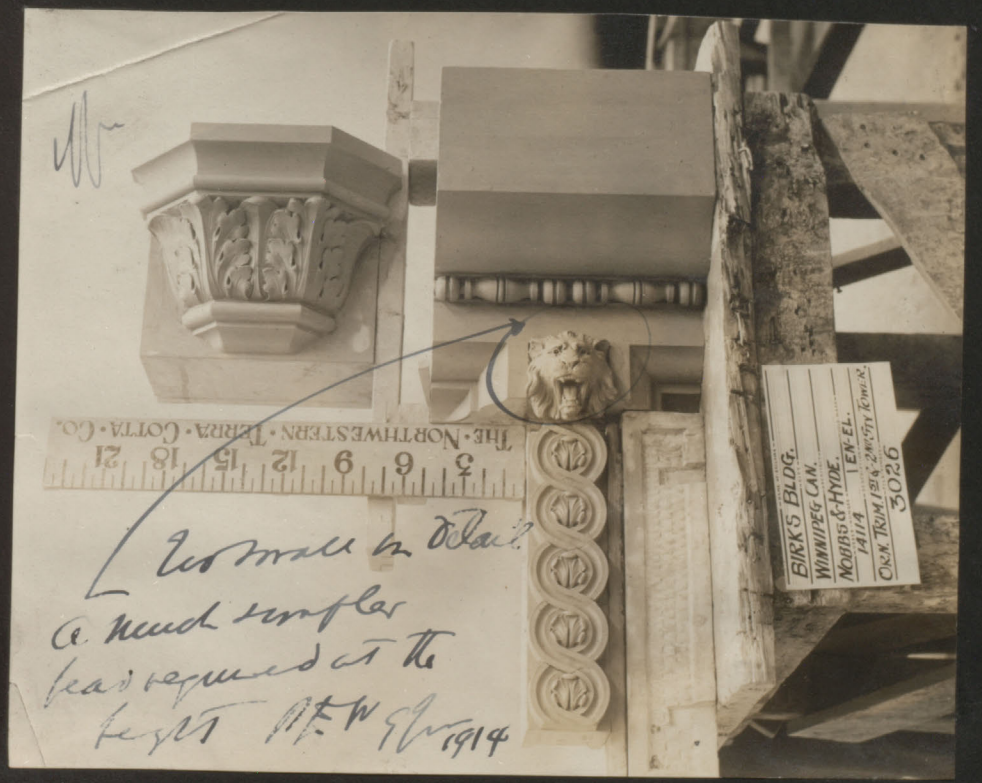 THE·NORTHWESTERN·TERRA·COTTA·CO.
3 6 9 12 15 18 21
BIRKS BLDG.
WINNIPEG CAN.
NOBBS & HYDE.
14114 EN-EL.
ORN. TRIM 1ST & 2ND STY TOWER.
3026
Too small in Detail
a much simpler
head required at the
height 1914